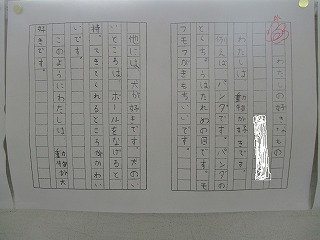 わたしの好きなもの
わたしは、動物が好きです。
例えばパンダです。パンダの
とくちょうはたれめの目です。モ
フモフがきもちいいです。
他には、犬が好きです。犬のい
いところは、ボールをなげると
持ってきてくれるところがかわい
いです。
このようにわたしは、動物が大
好きです。